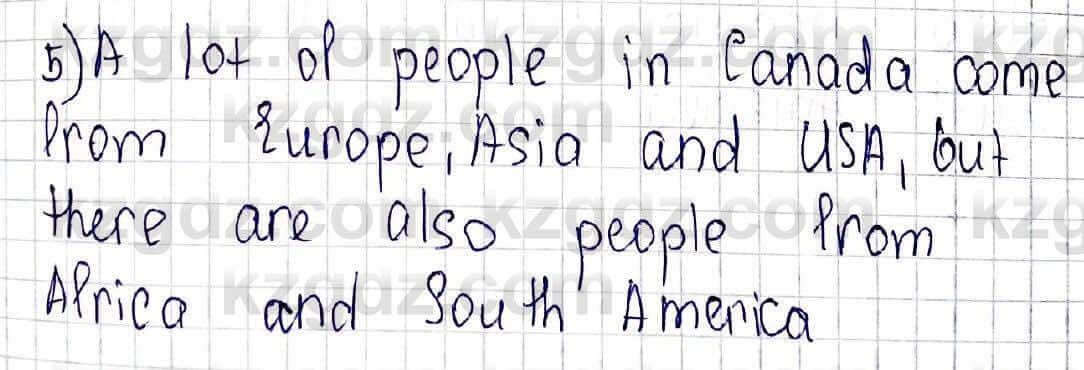 5) A lot of people in Canada come
from Europe, Asia and USA, but
there are also people from
Africa and South America